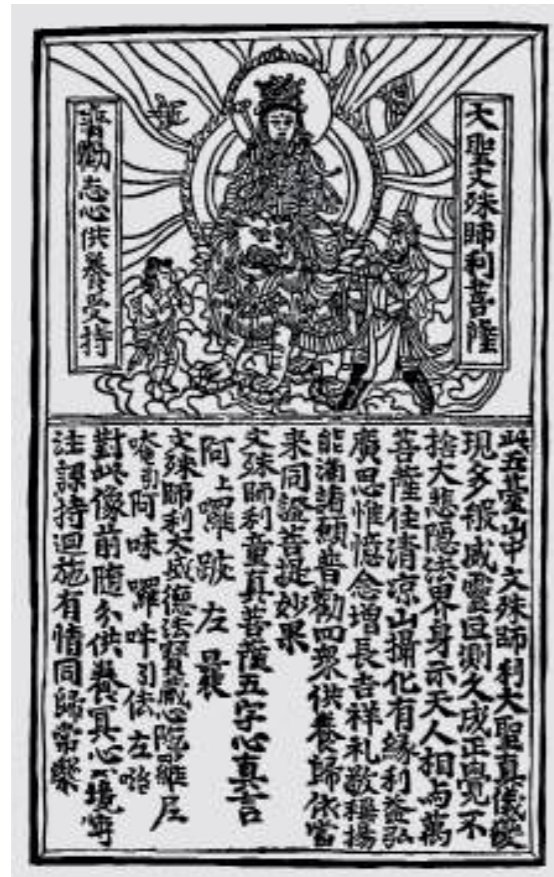 大聖文殊師利菩薩
普勸志心供養受持
此五臺山中文殊師利大聖真儀變
現多般威靈叵測久成正覺不
捨大悲隱法界身示天人相与萬
菩薩住清凉山攝化有緣利益弘
廣思惟憶念增長吉祥礼敬稱揚
能滿諸願普勸四衆供養歸依當
来同證菩提妙果
文殊師利童真菩薩五字心真言
阿上囉跛左曩
文殊師利大威德法寶藏心陁羅尼
唵引阿味囉吽引佉左
對此像前隨分供養冥心一境專
注課持迴施有情同歸常樂